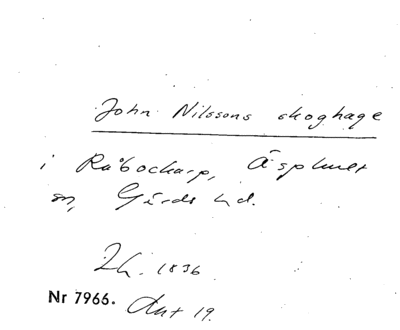 John Nilssons skoghage
i Råbockarp, Äsphult
sn, Gärds hd.
Lh. 1836
Nr 7966. Akt 19.